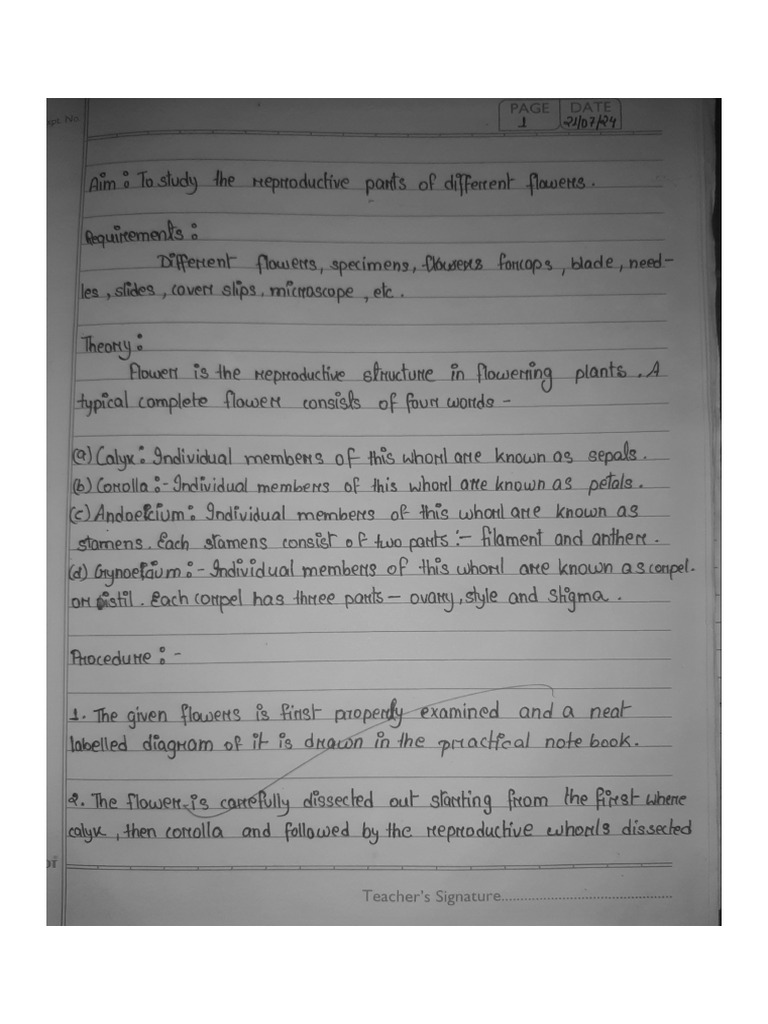 Expt. No
PAGE DATE
1 21/07/24
Aim : To study the reproductive parts of different flowers.
Requirements :
Different flowers, specimens, flowers forcops, blade, need-
les, slides, cover slips, microscope, etc.
Theory :
Flower is the reproductive structure in flowering plants. A
typical complete flower consists of four words -
(a) Calyx : Individual members of this whorl are known as sepals.
(b) Corolla :- Individual members of this whorl are known as petals.
(c) Andoecium : Individual members of this whorl are known as
stamens. Each stamens consist of two parts :- filament and anther.
(d) Gynoecium :- Individual members of this whorl are known as corpel.
or pistil. Each corpel has three parts – ovary, style and stigma.
Procedure : -
1. The given flowers is first properly examined and a neat
labelled diagram of it is drawn in the practical note book.
2. The flower is carefully dissected out starting from the first where
calyx, then corolla and followed by the reproductive whorls dissected
Teacher's Signature